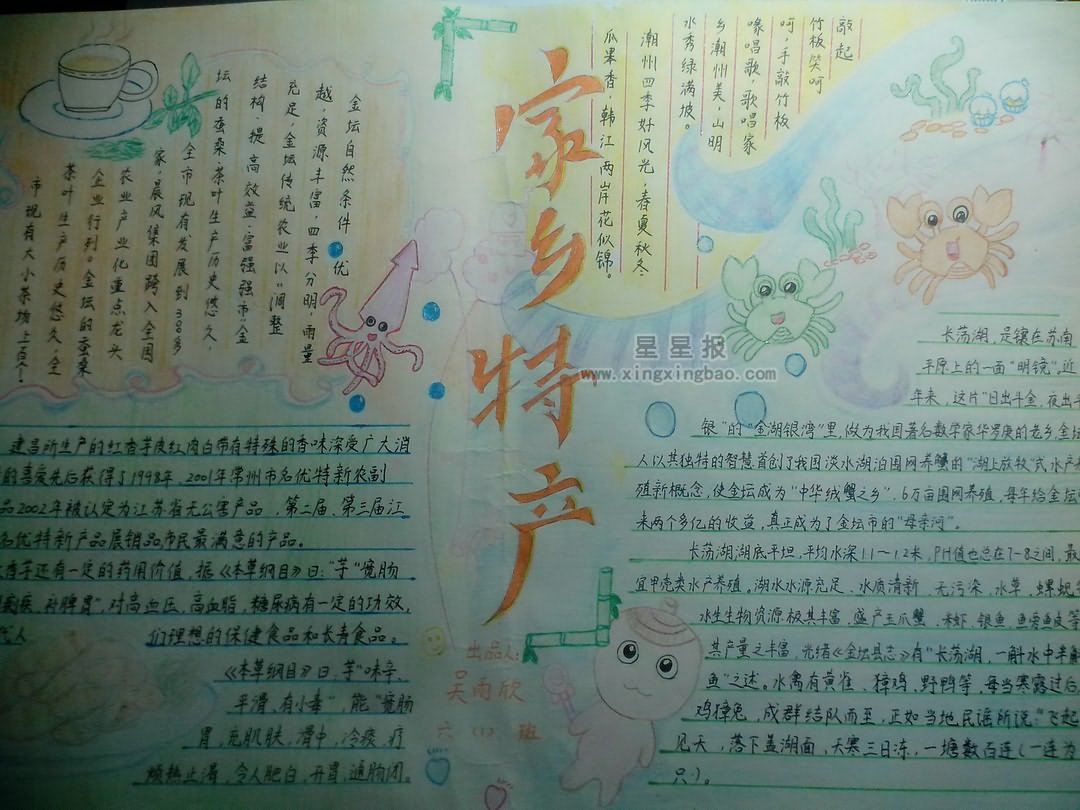 家乡特产
敲起
竹板笑呵
呵，手敲竹板
喙唱歌，歌唱家
乡潮州美，山明
水秀绿满坡。
潮州四季好风光，春夏秋冬
瓜果香，韩江两岸花似锦。
金坛自然条件优
越，资源丰富，四季分明，雨量
充足，金坛传统农业以"调整
结构，提高效益，富强强市"金
坛的蚕桑、茶叶生产历史悠久，
全市现有发展到30多
家，晨风集团跨入全国
农业产业化重点龙头
企业行列。金坛的蚕桑
茶叶生产历史悠久，全
市现有大小茶场上百个！
建昌所生产的红香芋皮红肉白带有特殊的香味深受广大消
的喜爱先后获得了1998年、2001年常州市名优特新农副
品2002年被认定为江苏省无公害产品，第二届、第三届江
名优特新产品展销品市民最满意的产品。
香芋还有一定的药用价值，据《本草纲目》曰："芋"宽肠
疾，补脾胃"，对高血压、高血脂，糖尿病有一定的功效，
人们理想的保健食品和长寿食品。
《本草纲目》曰，芋"味辛、
平滑，有小毒"，能"宽肠
胃，充肌肤，滑中，冷痰，疗
烦热止渴，令人肥白，开胃，通肠闭。
长荡湖，是镶在苏南
平原上的一面"明镜"。近
年来，这片"日出斗金，夜出斗
银"的"金湖银湾"里，做为我国著名数学家华罗庚的老乡，金坛
人以其独特的智慧首创了我国淡水湖泊围网养蟹的"湖上放牧"式水产养
殖新概念，使金坛成为"中华绒蟹之乡"，6万亩围网养殖，每年给金坛
来两个多亿的收益，真正成为了金坛市的"母亲河"。
长荡湖湖底平坦，平均水深1.1~1.2米，PH值也总在7-8之间，最
宜甲壳类水产养殖。湖水水源充足、水质清新，无污染，水草，螺蚬
水生生物资源极其丰富，盛产玉爪蟹、米虾、银鱼、鱼旁鱼皮等
其产量之丰富，光绪《金坛县志》有"长荡湖，一斛水中半斛
鱼"之述。水禽有黄雀、獐鸡、野鸭等，每当寒露过后，
鸡獐兔，成群结队而至，正如当地民谣所说："飞起
见天，落下盖湖面，天寒三日冻，一塘数百连（一连为
只）。
出品人：
吴雨欣
六（1）班
星星报
www.xingxingbao.com